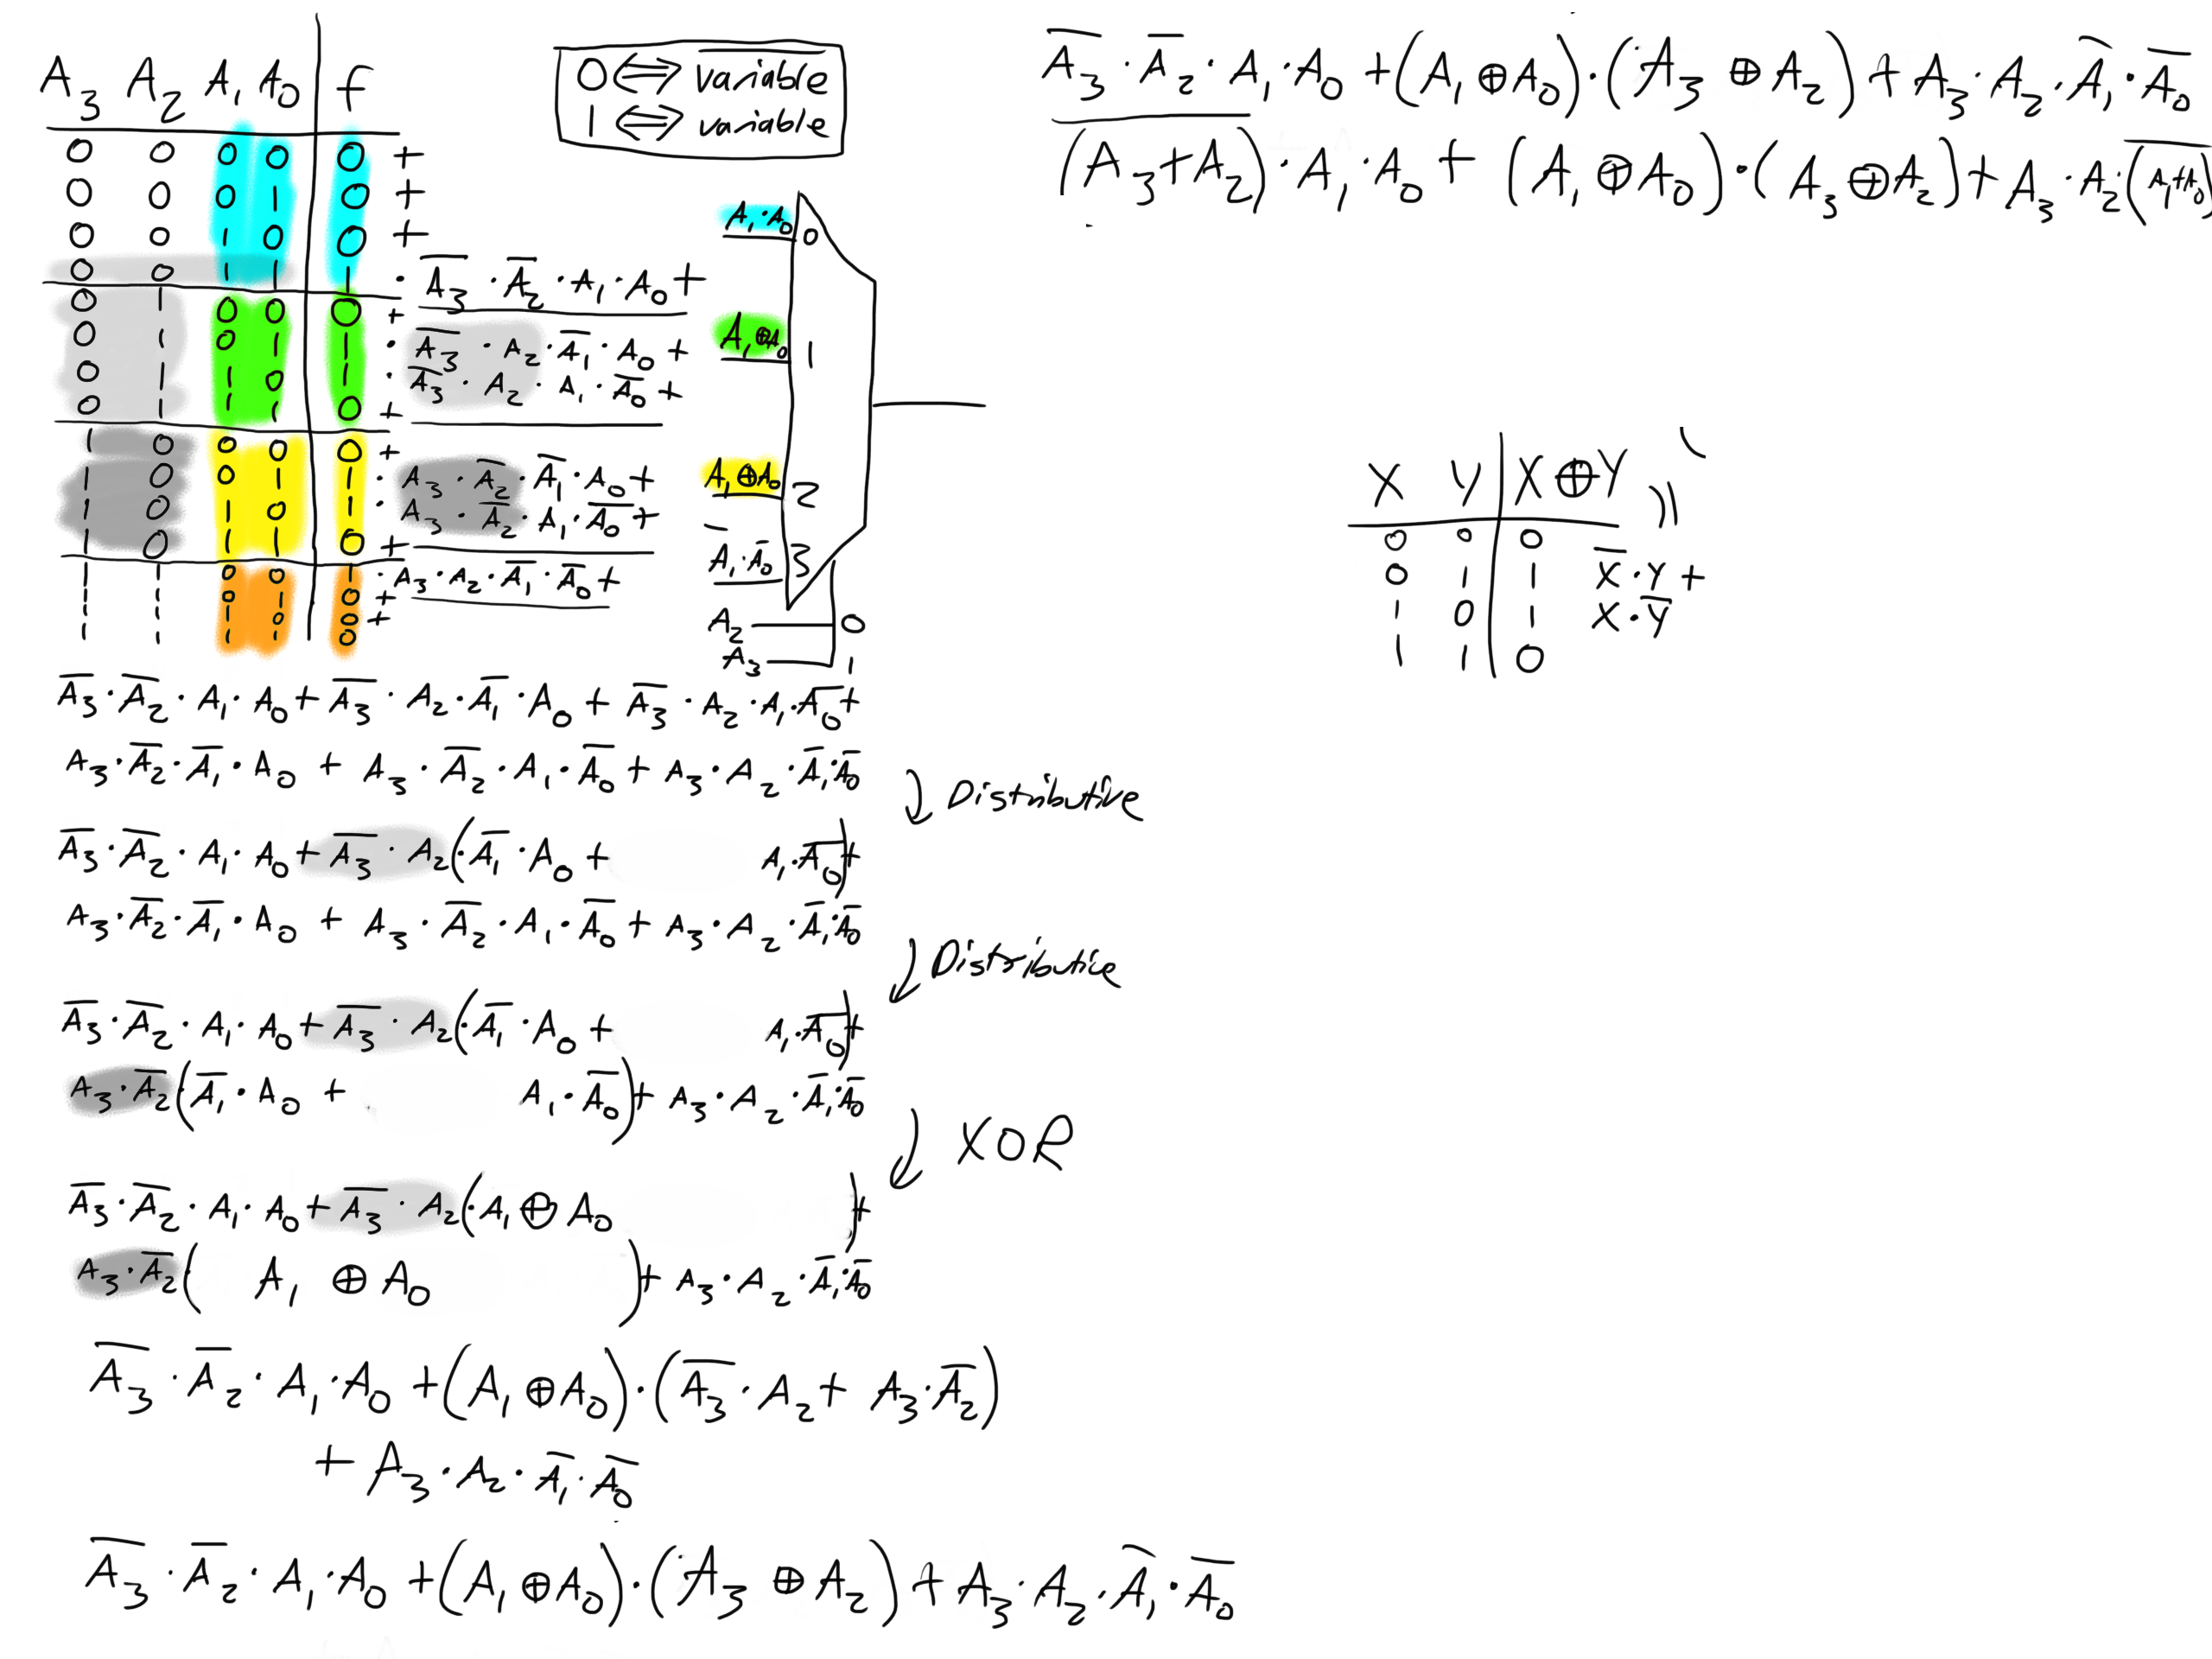 A₃ A₂ A₁ A₀ f
0 0 0 0 0 +
0 0 0 1 0 +
0 0 1 0 0 +
0 0 1 1 1 · A̅₃ · A̅₂ · A₁ · A₀ +
0 1 0 0 0 +
0 1 0 1 1 · A̅₃ · A₂ · A̅₁ · A₀ +
0 1 1 0 1 · A̅₃ · A₂ · A₁ · A̅₀ +
0 1 1 1 0 +
1 0 0 0 0 +
1 0 0 1 1 · A₃ · A̅₂ · A̅₁ · A₀ +
1 0 1 0 1 · A₃ · A̅₂ · A₁ · A̅₀ +
1 0 1 1 0 +
1 1 0 0 1 · A₃ · A₂ · A̅₁ · A̅₀ +
1 1 0 1 0 +
1 1 1 0 0 +
1 1 1 1 0
0 ⟺ v̅a̅r̅i̅a̅b̅l̅e̅
1 ⟺ variable
A₁·A₀ 0
A₁⊕A₀ 1
A₁⊕A₀ 2
A̅₁·A̅₀ 3
A₂ 0
A₃ 1
A̅₃ · A̅₂ · A₁ · A₀ + (A₁ ⊕ A₀) · (A₃ ⊕ A₂) + A₃ · A₂ · A̅₁ · A̅₀
(A₃+A₂)̅ · A₁ · A₀ + (A₁ ⊕ A₀) · (A₃ ⊕ A₂) + A₃ · A₂ · (A₁+A₀)̅
X Y X⊕Y
0 0 0
0 1 1 X̅·Y +
1 0 1 X·Y̅
1 1 0
A̅₃ · A̅₂ · A₁ · A₀ + A̅₃ · A₂ · A̅₁ · A₀ + A̅₃ · A₂ · A₁ · A̅₀ +
A₃ · A̅₂ · A̅₁ · A₀ + A₃ · A̅₂ · A₁ · A̅₀ + A₃ · A₂ · A̅₁ · A̅₀
Distributive
A̅₃ · A̅₂ · A₁ · A₀ + A̅₃ · A₂ (A̅₁ · A₀ + A₁ · A̅₀) +
A₃ · A̅₂ · A̅₁ · A₀ + A₃ · A̅₂ · A₁ · A̅₀ + A₃ · A₂ · A̅₁ · A̅₀
Distributive
A̅₃ · A̅₂ · A₁ · A₀ + A̅₃ · A₂ (A̅₁ · A₀ + A₁ · A̅₀) +
A₃ · A̅₂ (A̅₁ · A₀ + A₁ · A̅₀) + A₃ · A₂ · A̅₁ · A̅₀
XOR
A̅₃ · A̅₂ · A₁ · A₀ + A̅₃ · A₂ (A₁ ⊕ A₀) +
A₃ · A̅₂ (A₁ ⊕ A₀) + A₃ · A₂ · A̅₁ · A̅₀
A̅₃ · A̅₂ · A₁ · A₀ + (A₁ ⊕ A₀) · (A̅₃ · A₂ + A₃ · A̅₂)
+ A₃ · A₂ · A̅₁ · A̅₀
A̅₃ · A̅₂ · A₁ · A₀ + (A₁ ⊕ A₀) · (A₃ ⊕ A₂) + A₃ · A₂ · A̅₁ · A̅₀